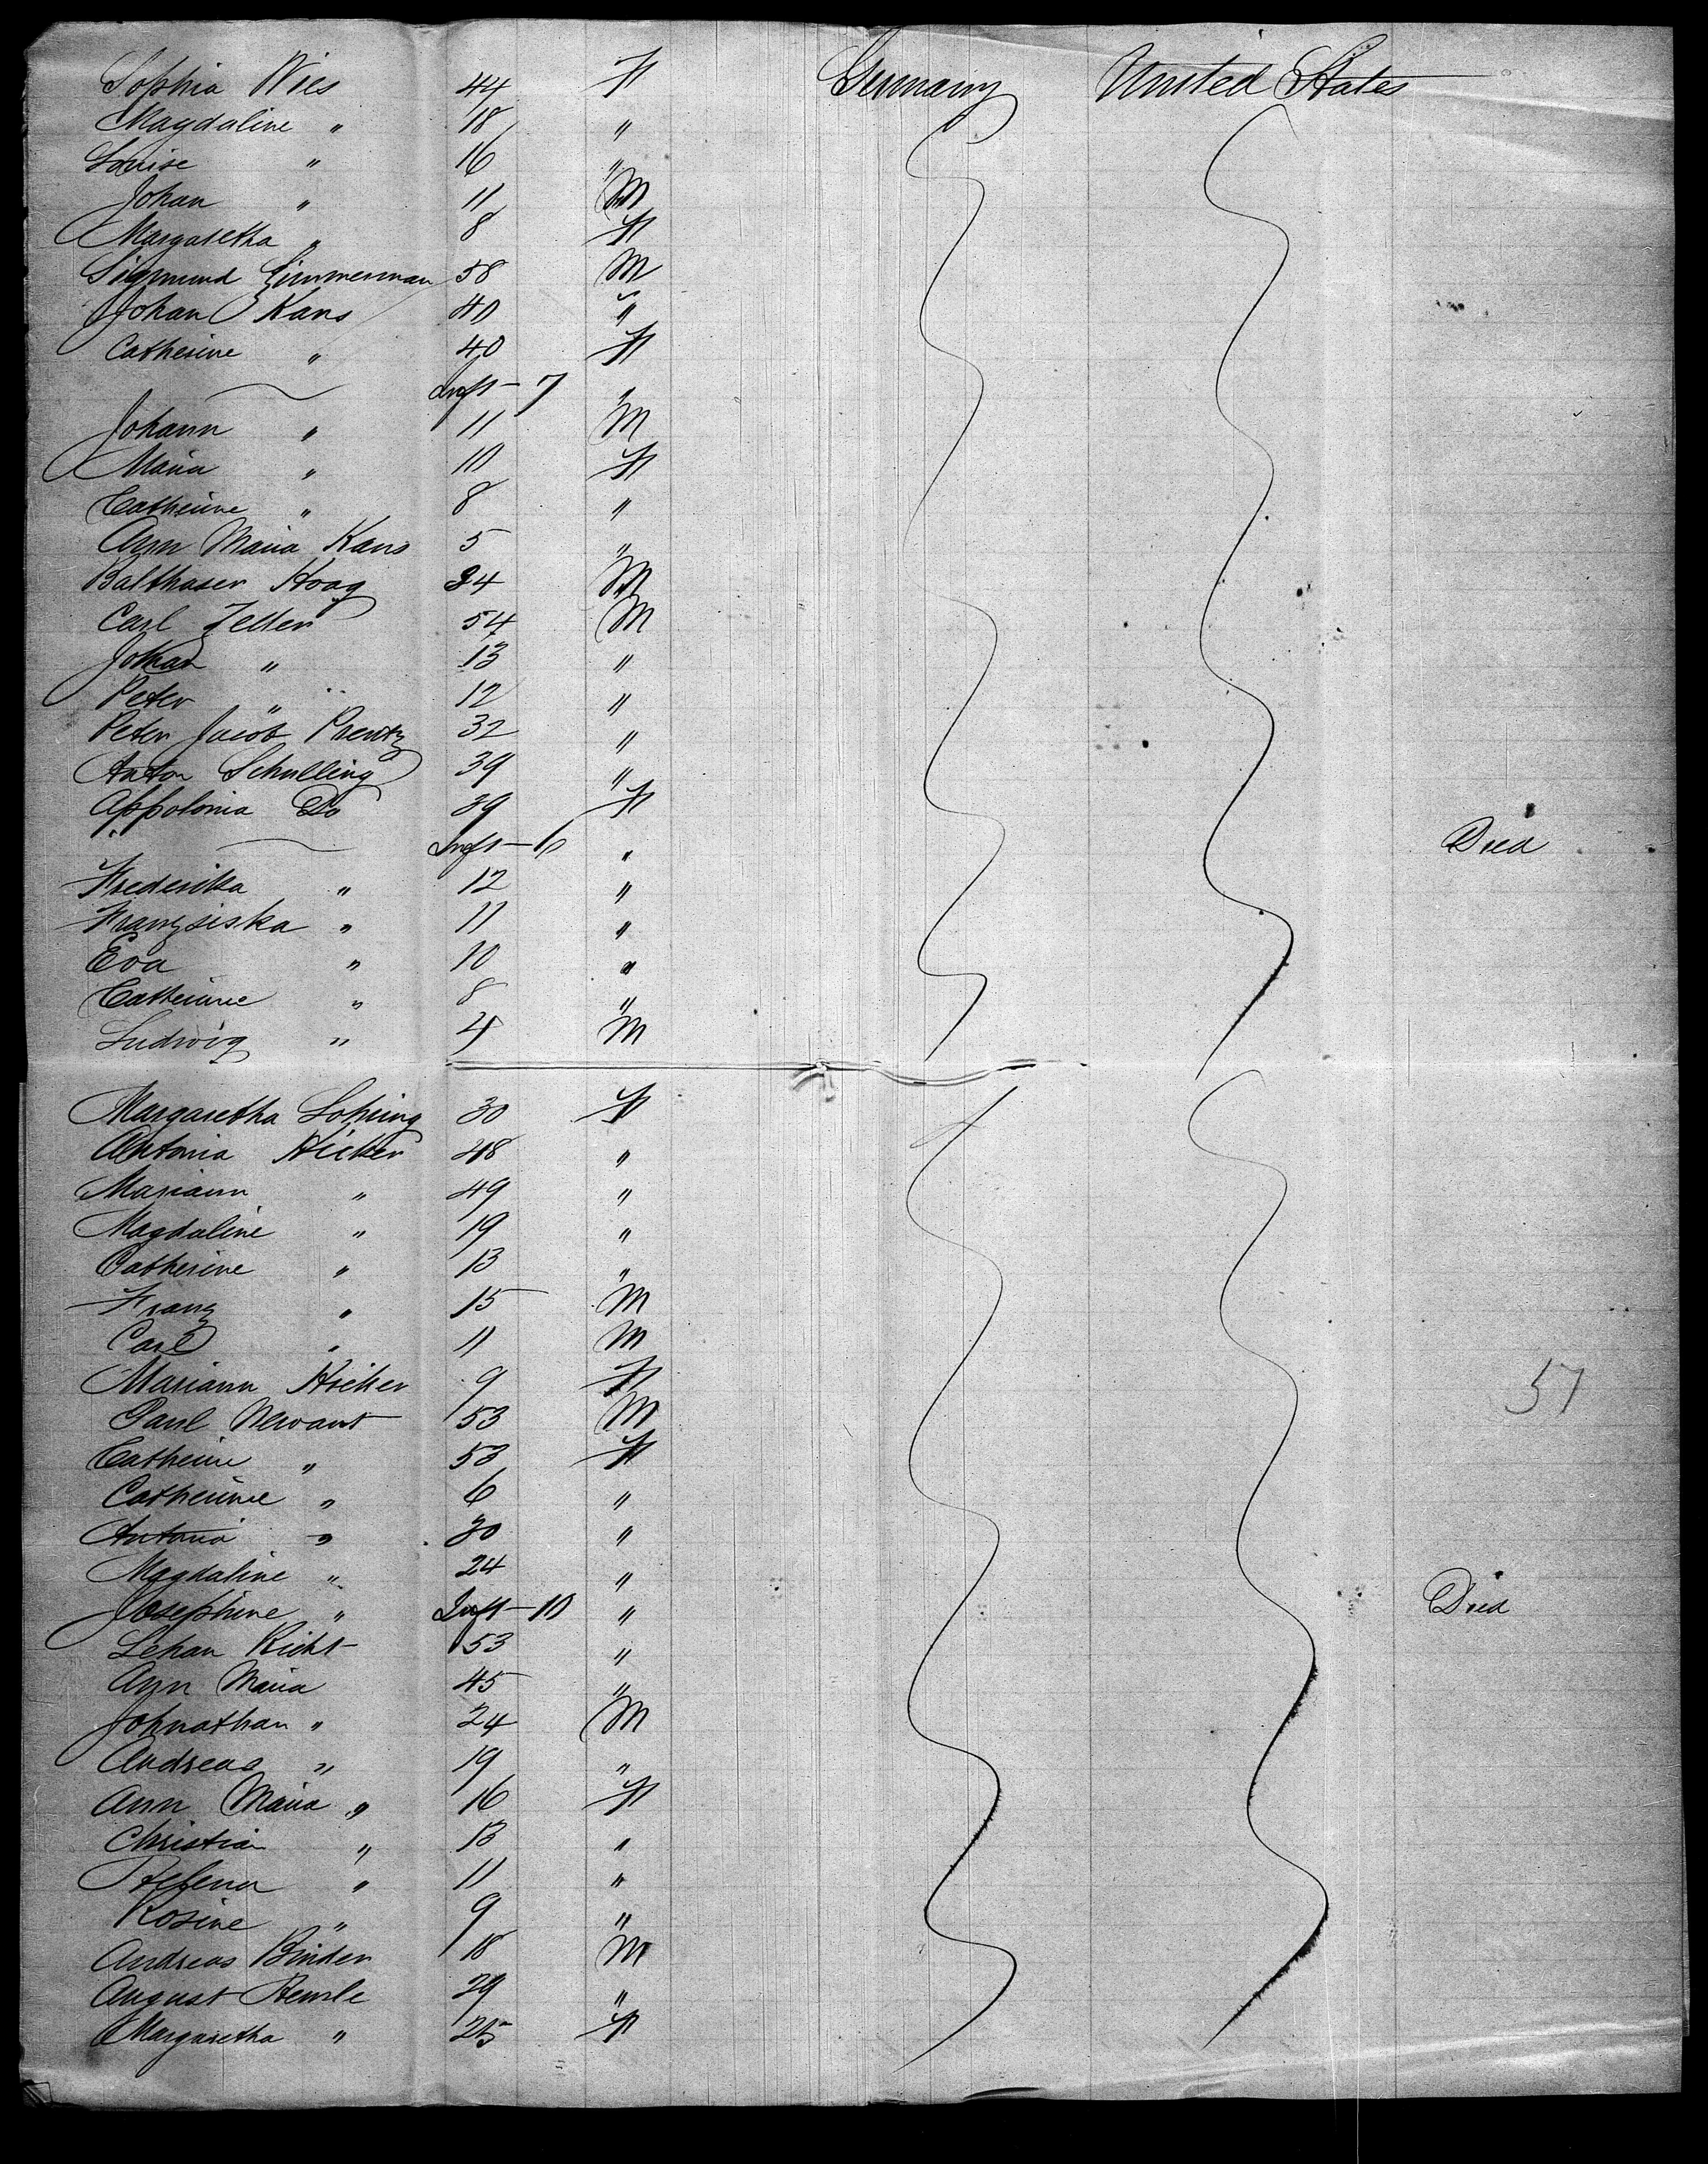 Sophia Wies 44 F Germany United States
Magdaline " 18 "
Louise " 16 "
Johan " 11 M
Margaretha " 8 F
Sigmund Zimmerman 58 M
Johan Kans 40 "
Catherine " 40 F
Inft - 7 "
Johann " 11 M
Maria " 10 F
Catherine " 8 "
Ann Maria Kans 5 "
Balthaser Hoag 34 M
Carl Zeller 54 M
Johan " 13 "
Peter " 12 "
Peter Jacob 32 "
Anton Schulling 39 "
Appolonia Do 39 F
Inft - 6 " Died
Frederika " 12 "
Franziska " 11 "
Eva " 10 "
Catherine " 8 "
Ludwig " 4 M
Margaretha Lohring 30 F
Antonia Hicker 48 "
Mariann " 49 "
Magdaline " 19 "
Catherine " 13 "
Franz " 15 M
Carl " 11 M
Mariann Hicker 9 F
57
Paul 53 M
Catherine " 53 F
Catherine " 6 "
Antonia " 30 "
Magdaline " 24 "
Josephine " Inft - 10 " Died
Richt 53 "
Ann Maria 45 "
Johnathan " 24 M
Andreas " 19 "
Ann Maria " 16 F
Christian " 13 "
Helena " 11 "
Rosine " 9 "
Andreas Binder 18 M
August 29 "
Margaretha " 25 F